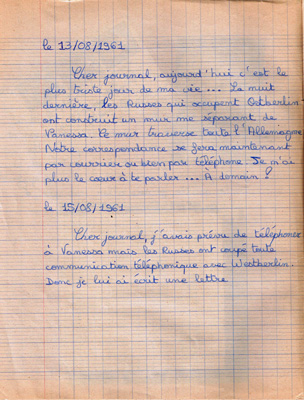 le 13/08/1961
Cher journal, aujourd'hui c'est le
plus triste jour de ma vie... La nuit
dernière, les Russes qui ocupent Ostberlin
ont construit un mur me séparant de
Vanessa. Ce mur traverse toute l'Allemagne
Notre correspondance se fera maintenant
par courrier ou bien par téléphone. Je n'ai
plus le cœur à te parler... À demain !
le 15/08/1961
Cher journal, j'avais prévu de téléphoner
à Vanessa mais les Russes ont coupé toute
communication téléphonique avec Westberlin.
Donc je lui ai écrit une lettre